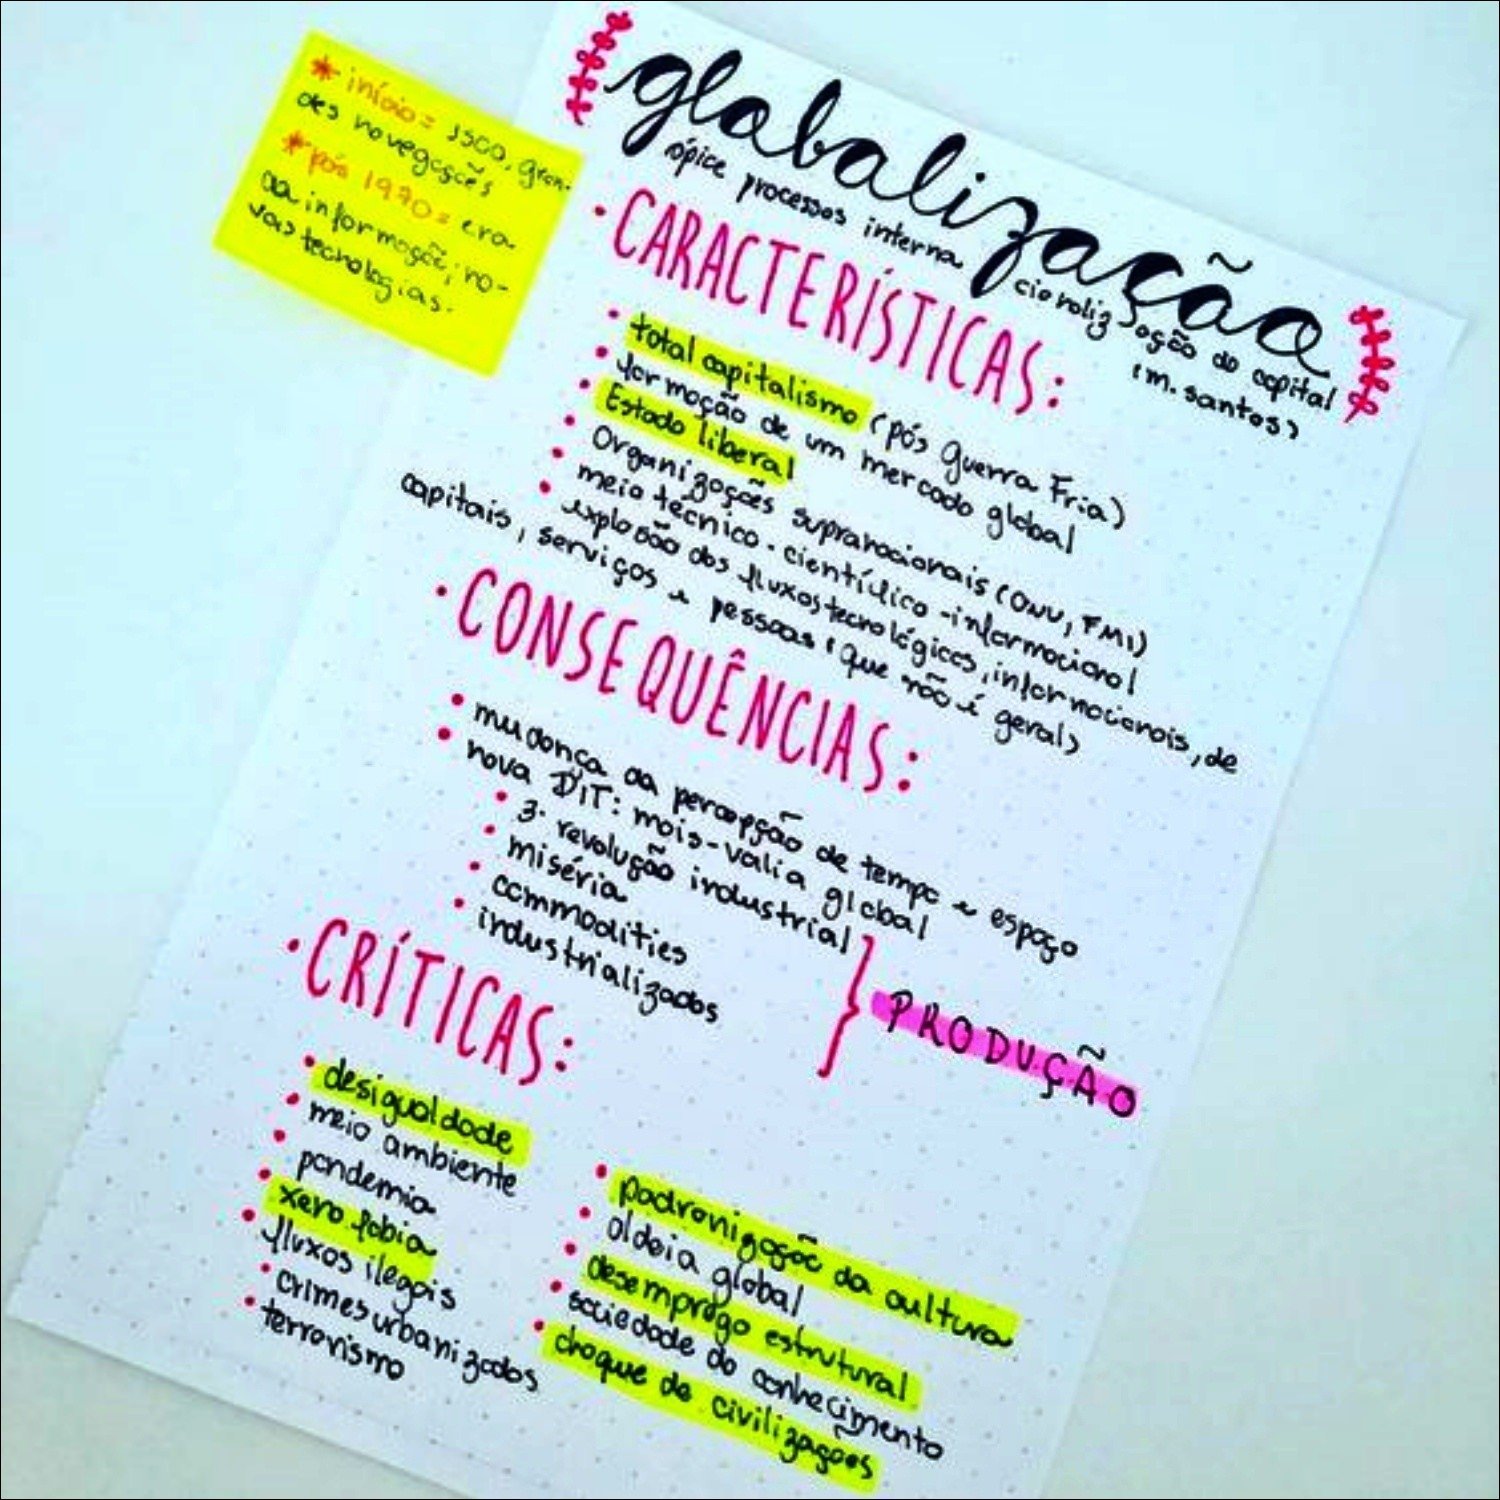 * início = 1500, gran-
des navegações
* pós 1970 = era
da informação; no-
vas tecnologias.
globalização
ápice processos interna cionaliz ação do capital
(m. santos)
• CARACTERÍSTICAS:
• total capitalismo (pós Guerra Fria)
• formação de um mercado global
• Estado liberal
• Organizações supranacionais (ONU, FMI)
• meio técnico - científico - informacional
• explosão dos fluxos tecnológicos, informacionais, de
capitais, serviços e pessoas (que não é geral)
• CONSEQUÊNCIAS:
• mudança da percepção de tempo e espaço
• nova DIT: mais-valia global
• 3ª revolução industrial
• miséria
• commodities
• industrializados
} PRODUÇÃO
• CRÍTICAS:
• desigualdade
• meio ambiente
• pandemia
• xenofobia
• fluxos ilegais
• crimes urbanizados
• terrorismo
• padronização da cultura
• aldeia global
• desemprego estrutural
• sociedade do conhecimento
• choque de civilizações